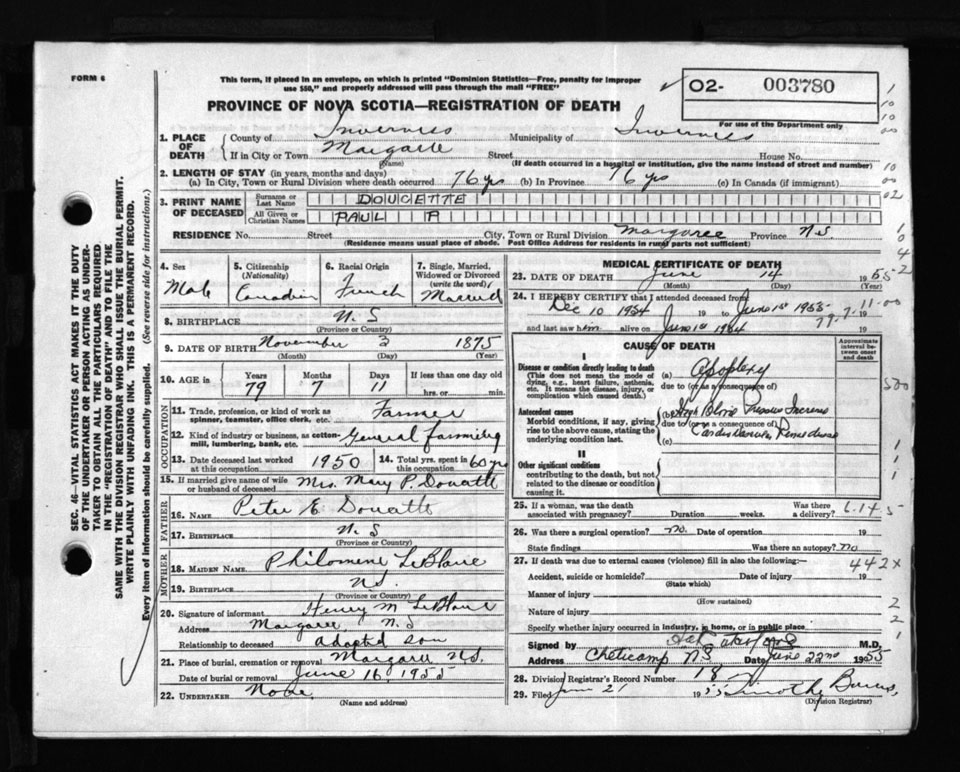 FORM 6
This form, if placed in an envelope, on which is printed "Dominion Statistics—Free, penalty for improper
use $50," and properly addressed will pass through the mail "FREE"
O2- 003780
For use of the Department only
PROVINCE OF NOVA SCOTIA—REGISTRATION OF DEATH
1. PLACE OF DEATH County of Inverness Municipality of Inverness
If in City or Town Margaree Street House No.
(Name) (If death occurred in a hospital or institution, give the name instead of street and number)
2. LENGTH OF STAY (in years, months and days)
(a) In City, Town or Rural Division where death occurred 76 yrs (b) In Province 76 yrs (c) In Canada (if immigrant)
3. PRINT NAME OF DECEASED Surname or Last Name DOUCETTE
All Given or Christian Names PAUL P
RESIDENCE No. Street City, Town or Rural Division Margaree Province N.S
(Residence means usual place of abode. Post Office Address for residents in rural parts not sufficient)
4. Sex Male
5. Citizenship (Nationality) Canadian
6. Racial Origin French
7. Single, Married, Widowed or Divorced (write the word) Married
8. BIRTHPLACE N. S
(Province or Country)
9. DATE OF BIRTH November 3 1875
(Month) (Day) (Year)
10. AGE in Years 79 Months 7 Days 11 If less than one day hrs. or min.
OCCUPATION
11. Trade, profession, or kind of work as spinner, teamster, office clerk, etc. Farmer
12. Kind of industry or business, as cotton-mill, lumbering, bank, etc. General farming
13. Date deceased last worked at this occupation 1950 14. Total yrs. spent in this occupation 60 yrs
15. If married give name of wife or husband of deceased Mrs. Mary P. Doucette
FATHER
16. NAME Peter E Doucette
17. BIRTHPLACE N. S
(Province or Country)
MOTHER
18. MAIDEN NAME Philomene LeBlanc
19. BIRTHPLACE N.S.
(Province or Country)
20. Signature of informant Henry M LeBlanc
Address Margaree N.S
Relationship to deceased Adopted son
21. Place of burial, cremation or removal Margaree N.S.
Date of burial or removal June 16, 1955
22. UNDERTAKER None
(Name and address)
MEDICAL CERTIFICATE OF DEATH
23. DATE OF DEATH June 14 1955
(Month) (Day) (Year)
24. I HEREBY CERTIFY that I attended deceased from
Dec 10 1954 19 to June 1st 1955
and last saw him alive on June 1st 1954
79-7-11-00
CAUSE OF DEATH
Approximate interval between onset and death
I
Disease or condition directly leading to death
(This does not mean the mode of dying, e.g., heart failure, asthenia, etc. It means the disease, injury, or complication which caused death.)
(a) Apoplexy
due to (or as a consequence of)
Antecedent causes
Morbid conditions, if any, giving rise to the above cause, stating the underlying condition last.
(b) High Blood Pressure
due to (or as a consequence of)
(c)
II
Other significant conditions
contributing to the death, but not related to the disease or condition causing it.
25. If a woman, was the death associated with pregnancy? Duration weeks. Was there a delivery? 6.14 5
26. Was there a surgical operation? no. Date of operation 19
State findings Was there an autopsy? no
27. If death was due to external causes (violence) fill in also the following:—
442x
Accident, suicide or homicide? Date of injury 19
(State which)
Manner of injury
(How sustained)
Nature of injury
Specify whether injury occurred in industry, in home, or in public place
Signed by M.D.
Address Cheticamp NS Date June 22nd 1955
28. Division Registrar's Record Number 18
29. Filed June 21 1955 Timothy
(Division Registrar)
SEC. 46—VITAL STATISTICS ACT MAKES IT THE DUTY
OF THE UNDERTAKER OR PERSON ACTING AS UNDER-
TAKER TO OBTAIN ALL THE PARTICULARS REQUIRED
IN THE "REGISTRATION OF DEATH" AND TO FILE THE
SAME WITH THE DIVISION REGISTRAR WHO SHALL ISSUE THE BURIAL PERMIT.
WRITE PLAINLY WITH UNFADING INK. THIS IS A PERMANENT RECORD.
Every item of information should be carefully supplied. (See reverse side for instructions.)